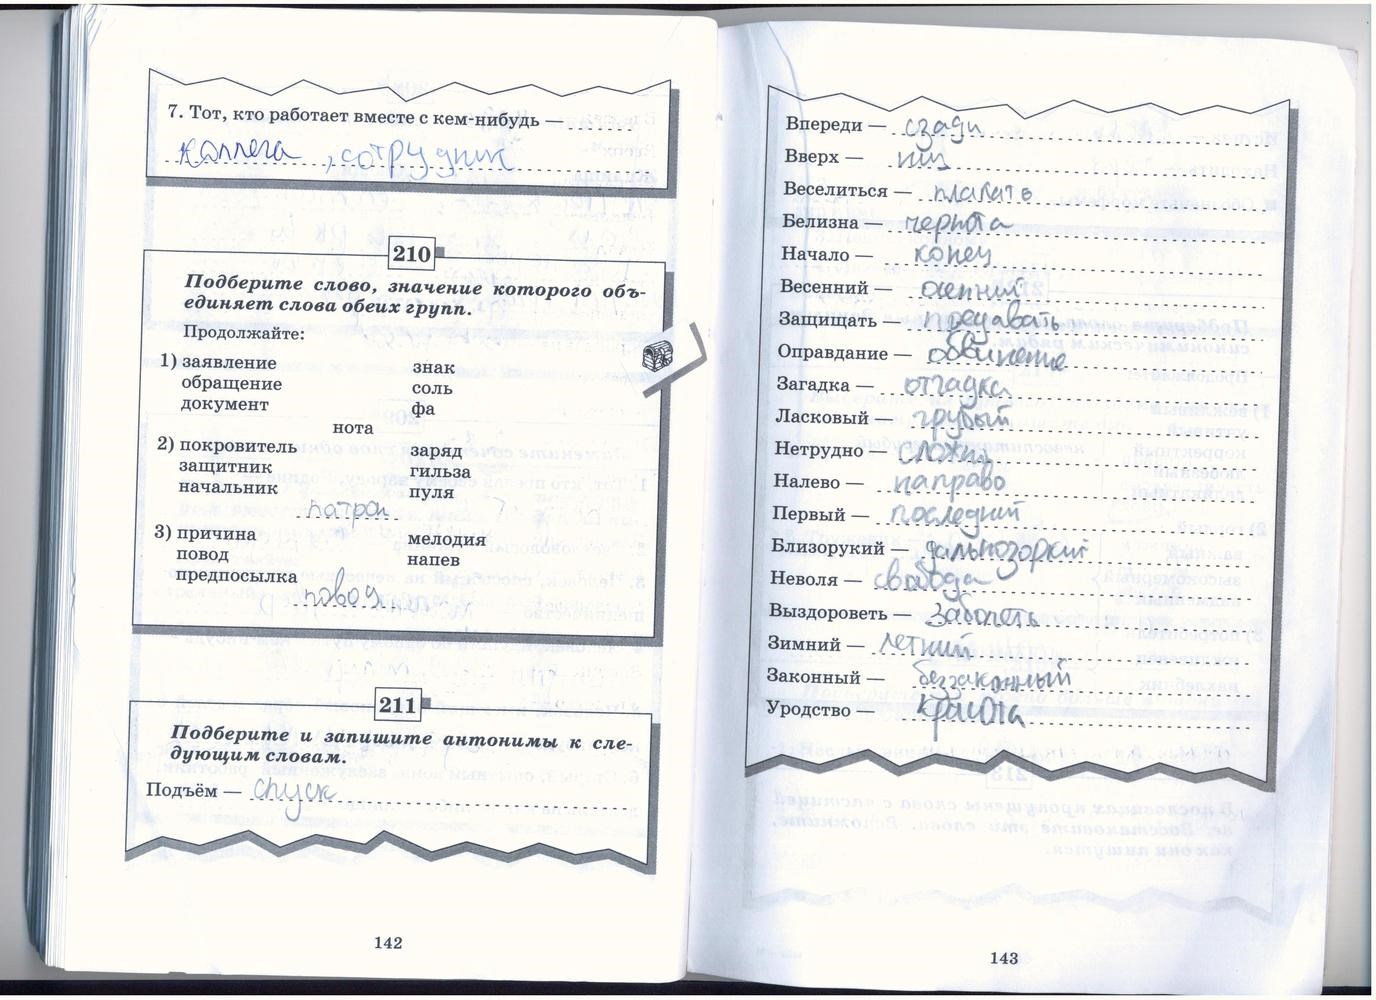 7. Тот, кто работает вместе с кем-нибудь —
коллега, сотрудник
210
Подберите слово, значение которого объ-
единяет слова обеих групп.
Продолжайте:
1) заявление знак
обращение соль
документ фа
нота
2) покровитель заряд
защитник гильза
начальник пуля
патрон
3) причина мелодия
повод напев
предпосылка
повод
211
Подберите и запишите антонимы к сле-
дующим словам.
Подъём — спуск
142
Впереди — сзади
Вверх — низ
Веселиться — плакать
Белизна — чернота
Начало — конец
Весенний — осенний
Защищать — предавать
Оправдание — обвинение
Загадка — отгадка
Ласковый — грубый
Нетрудно — сложно
Налево — направо
Первый — последний
Близорукий — дальнозоркий
Неволя — свобода
Выздороветь — заболеть
Зимний — летний
Законный — беззаконный
Уродство — красота
143